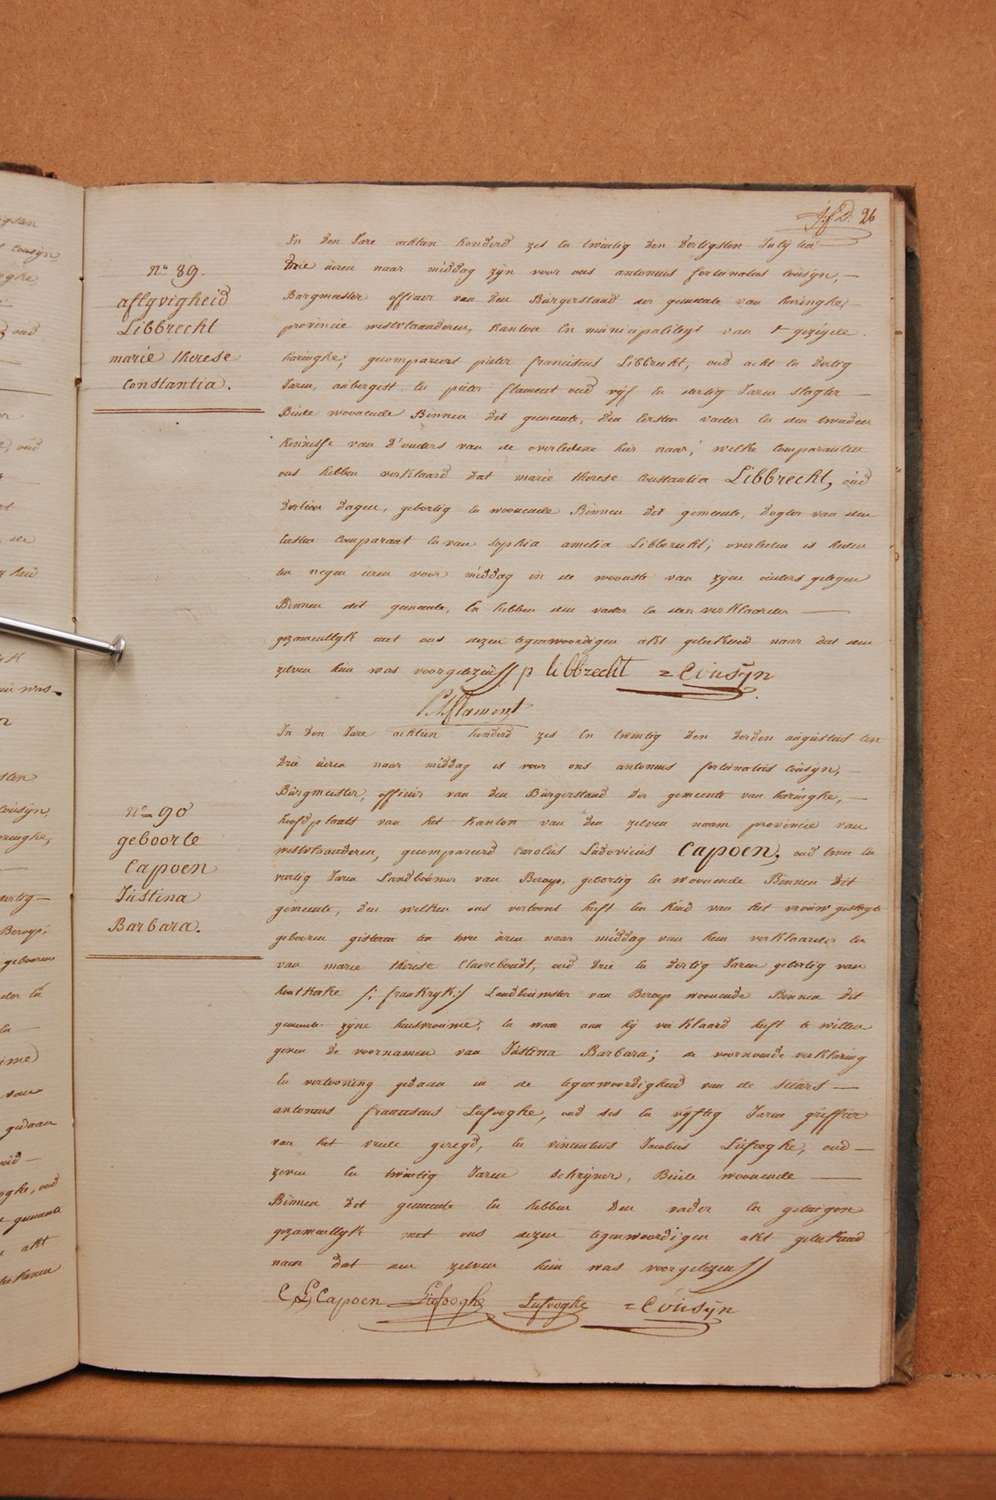 26
n° 89.
aflyvigheid
Libbrecht
marie therese
Constantia.
In den Jare achtien honderd zes en twintig den dertigsten July ten
drie uren naar middag zyn voor ons antonius fortunatus Cousÿn,
Burgmeester officier van den Burgerstand der gemeente van haringhe,
provincie westvlaanderen, kanton en municipaliteyt van
haringhe, gecompareert pieter franciscus Libbrecht, oud acht en dertig
Jaren, en pieter flament oud vyf en veertig Jaren slagter
Beide woonende Binnen dit gemeente, den eersten vader en den tweeden
kennisse van d'ouders van de overledene hier naer, welke comparanten
ons hebben verklaard dat marie therese Constantia Libbrecht, oud
dagen, geboortig en woonende Binnen dit gemeente, dogter van den
eersten comparant en van sophia amelia Libbrecht, overleden is heden
ten negen uren voor middag in de woonste van zyne ouders gelegen
Binnen dit gemeente, en hebben den vader en den verklaarder
gezamentlyk met ons dezen tegenwoordigen akt geteekend naer dat den
zelven hun was voorgelezen p libbrecht = Cousÿn
flament
In den Jare achtien honderd zes en twintig den derden augustus ten
drie uren naar middag is voor ons antonius fortunatus Cousÿn,
Burgmeester, officier van den Burgerstand der gemeente van haringhe,
hoofdplaats van het kanton van den zelven naam provincie van
westvlaanderen, gecompareerd Carolus Ludovicus Capoen, oud twee en
veertig Jaren Landbouwer van Beroep, geboortig en woonende Binnen dit
gemeente, den welken ons vertoont heeft een kind van het vrouwelyk geslagt
geboren gisteren ten twee uren naar middag van hem verklaarder en
van marie therese Clairebaudt, oud drie en dertig Jaren geboortig van
houtkerke /: frankryk :/ Landbouwster van Beroep woonende Binnen dit
gemeente zyne huisvrouwe, en waar aan hy verklaard heeft te willen
geven de voornamen van Jüstina Barbara; de voornoemde verklaring
en vertooning gedaan in de tegenwoordigheid van de sieurs
antonius franciscus Liefooghe, oud zes en vyftig Jaren griffier
van het vrede geregt, en vincentius Jacobus Liefooghe, oud
zeven en twintig Jaren schryver, Beide woonende
Binnen dit gemeente en hebben den vader en getuigen
gezamentlyk met ons dezen tegenwoordigen akt geteekend
naer dat den zelven hun was voorgelezen
n° 90
geboorte
Capoen
Jüstina
Barbara.
C L Capoen Liefooghe Liefooghe = Cousÿn